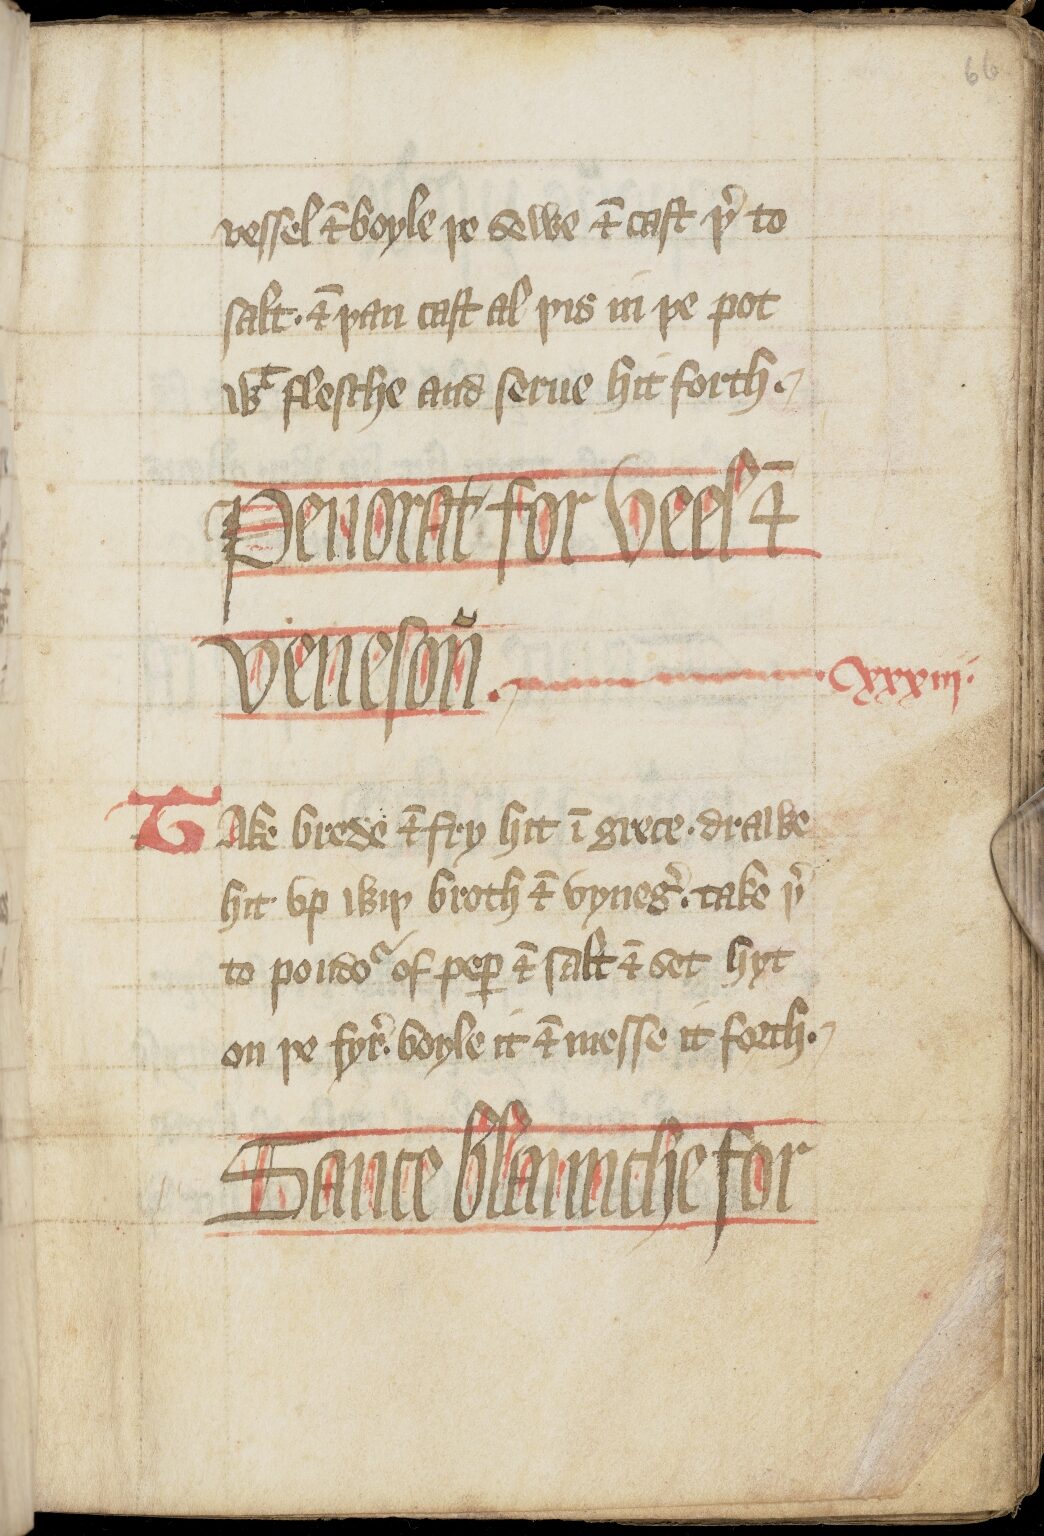 66
vessel ⁊ boyle þe dewe ⁊ cast þ͛ to
salt · ⁊ þan cast al þis in þe pot
wᵗ flesche and serue hit forth ·
Peuorat for veel ⁊
venesoñ · xxxiij ·
Take brede ⁊ fry hit ī grece · drawe
hit vp wiþ broth ⁊ vyneg͛ · take þ͛
to poudoʳ of peꝑ ⁊ salt ⁊ set hyt
on þe fyr͛ · boyle it ⁊ messe it forth ·
Sauce blaunche for